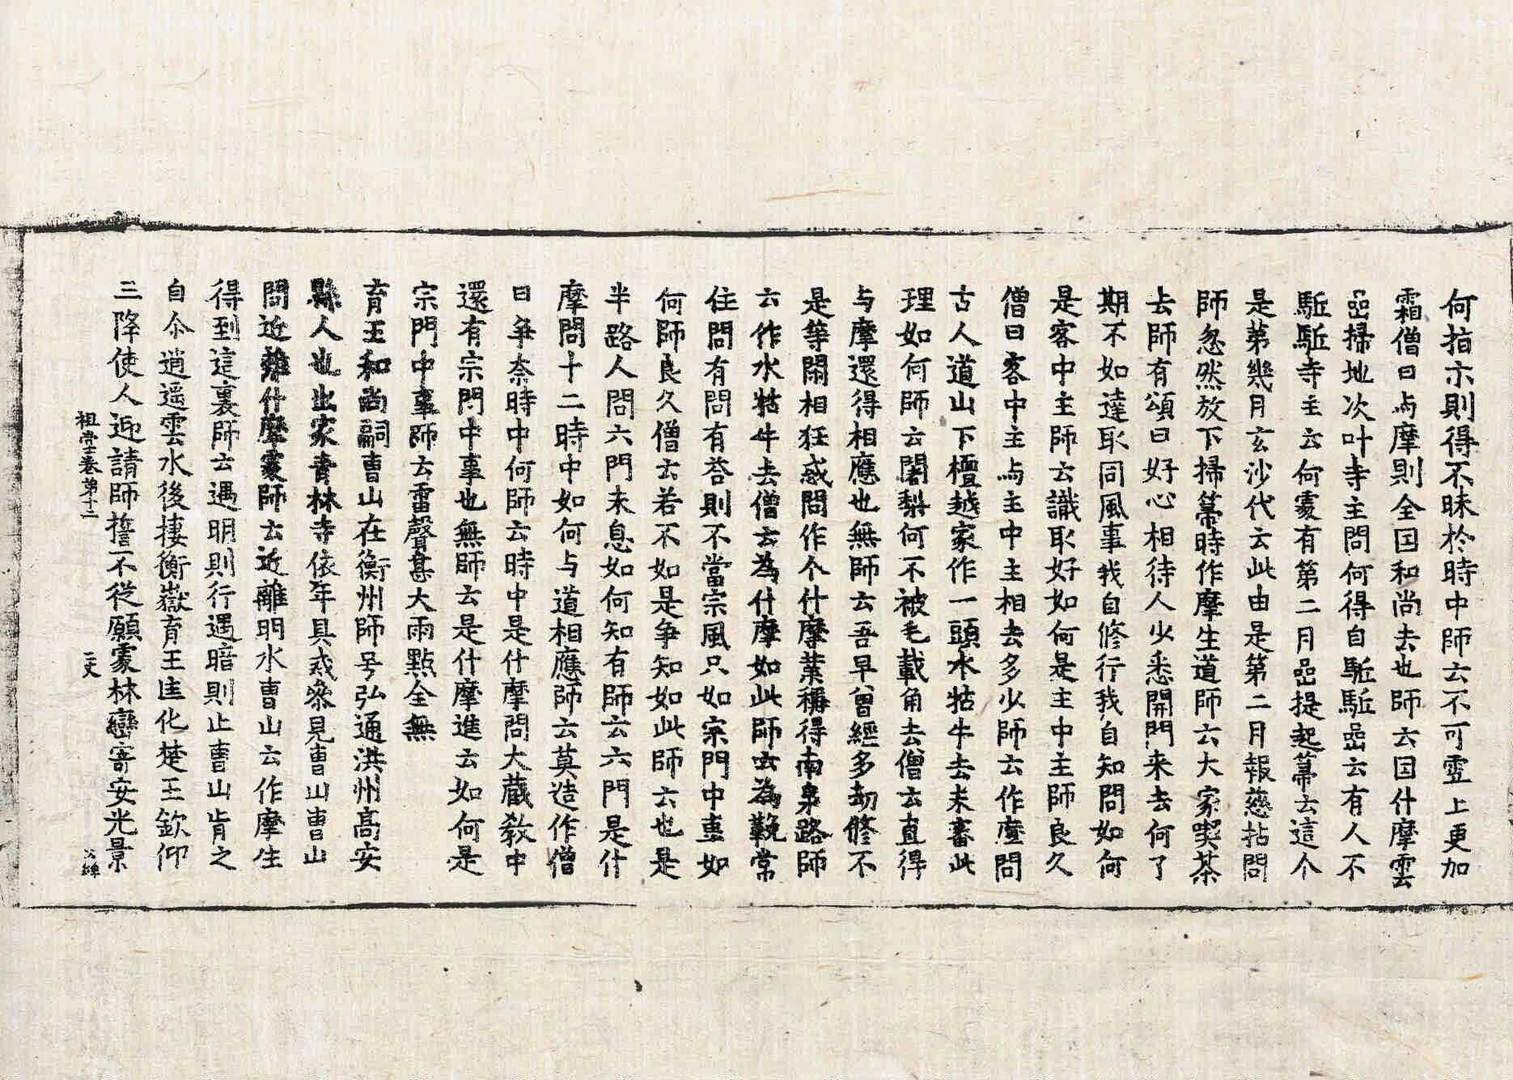 何指示則得不昧於時中師云不可雪上更加
霜僧曰与摩則全因和尚去也師云因什摩雲
嵒掃地次叶寺主問何得自駈駈嵒云有人不
駈駈寺主云何處有第二月嵒提起箒云這个
是第幾月玄沙代云此由是第二月報慈拈問
師忽然放下掃箒時作摩生道師云大家喫茶
去師有頌曰好心相待人少悉開門来去何了
期不如達取同風事我自修行我自知問如何
是客中主師云識取好如何是主中主師良久
僧曰客中主与主中主相去多少師云作摩問
古人道山下檀越家作一頭水牯牛去未審此
理如何師云闍梨何不被毛戴角去僧云直得
与摩還得相應也無師云吾早曾經多劫修不
是等閑相狂惑問作个什摩業稱得南泉路師
云作水牯牛去僧云為什摩如此師云為難常
住問有問有荅則不當宗風只如宗門中事如
何師良久僧云若不如是争知如此師云也是
半路人問六門未息如何知有師云六門是什
摩問十二時中如何与道相應師云莫造作僧
曰争奈時中何師云時中是什摩問大蔵教中
還有宗門中事也無師云是什摩進云如何是
宗門中事師云雷聲甚大雨點全無
育王和尚嗣曹山在衡州師号弘通洪州高安
縣人也出家青林寺依年具戒參見曹山曹山
問近離什摩處師云近離明水曹山云作摩生
得到這裏師云遇明則行遇暗則止曹山肯之
自尒逍遥雲水後棲衡嶽育王匡化楚王欽仰
三降使人迎請師誓不從願處林巒寄安光景
祖堂卷第十二